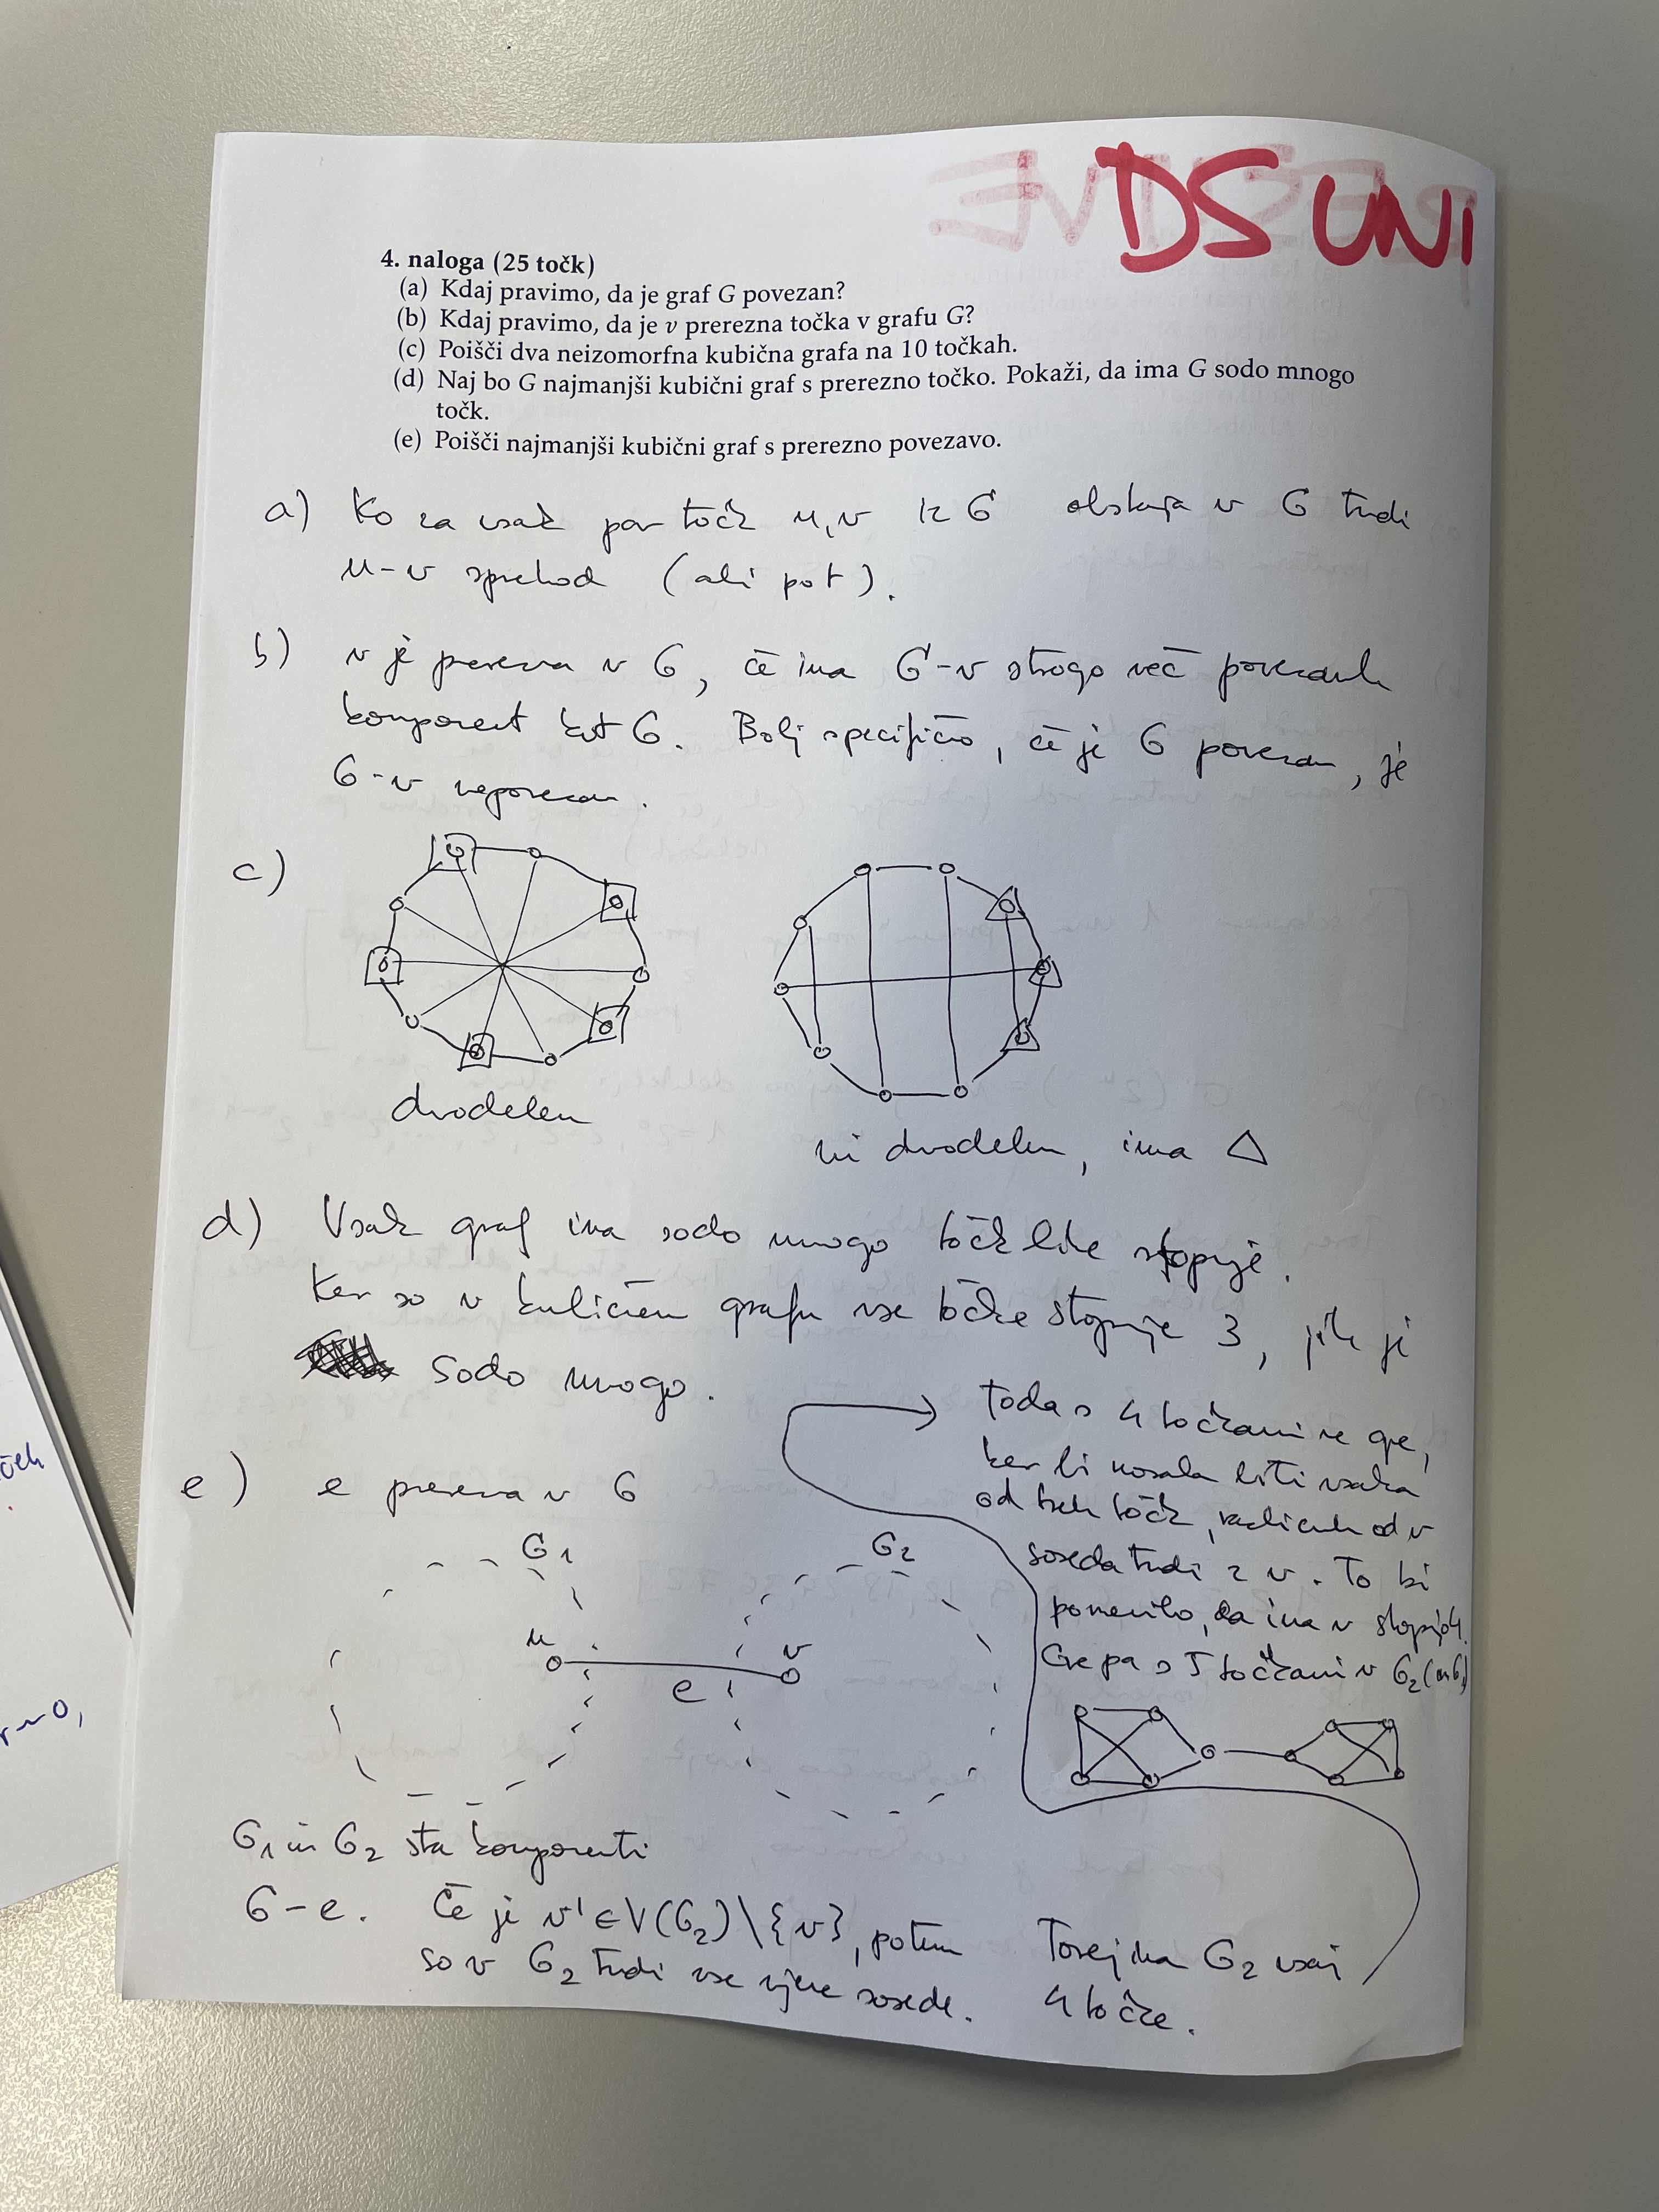 DS UNI
4. naloga (25 točk)
(a) Kdaj pravimo, da je graf G povezan?
(b) Kdaj pravimo, da je v prerezna točka v grafu G?
(c) Poišči dva neizomorfna kubična grafa na 10 točkah.
(d) Naj bo G najmanjši kubični graf s prerezno točko. Pokaži, da ima G sodo mnogo
točk.
(e) Poišči najmanjši kubični graf s prerezno povezavo.
a) Ko za vsak par točk u, v iz G obstaja v G tudi
u-v sprehod (ali pot).
b) v je prerezna v G, če ima G-v strogo več povezanih
komponent kot G. Bolj specifično, če je G povezan, je
G-v nepovezan.
c)
dvodelen
ni dvodelen, ima △
d) Vsak graf ima sodo mnogo točk lihe stopnje.
Ker so v kubičnem grafu vse točke stopnje 3, jih je
sodo mnogo.
e) e prerezna v G
G1
G2
u
v
e
G1 in G2 sta komponenti
G-e. Če je v' ∈ V(G2) \ {v}, potem
so v G2 tudi vse njene sosede.
Torej ima G2 vsaj
4 točke.
Toda s 4 točkami ne gre,
ker bi morala biti vsaka
od treh točk, različnih od v
soseda tudi z v. To bi
pomenilo, da ima v stopnjo 4.
Gre pa s 5 točkami v G2 (in G1)
öch
v~0,